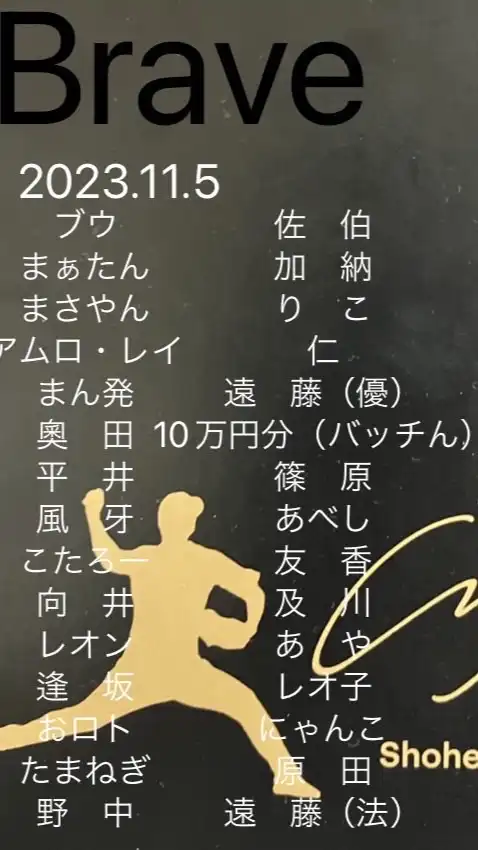 Brave
2023.11.5
ブウ 佐 伯
まぁたん 加 納
まさやん り こ
アムロ・レイ 仁
まん発 遠 藤（優）
奥 田 10万円分（バッチん）
平 井 篠 原
風 牙 あべし
こたろー 友 香
向 井 及 川
レオン あ や
逢 坂 レオ子
お口ト にゃんこ
Shohe
たまねぎ 原 田
野 中 遠 藤（法）